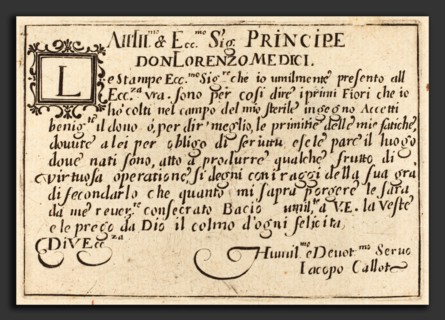 All Ill.mo & Ecc.mo Sig. PRINCIPE
DON LORENZO MEDICI.
L
e Stampe Ecc.mo Sig.re che io umilmente presento all
Ecc.za vra. sono per cosi dire i primi Fiori che io
hò colti nel campo del mio sterile ingegno Accetti
benig.te il dono ò, per dir' meglio, le primitie delle mie fatiche,
douute a lei per obligo di seruitu e se le pare il luogo
doue nati sono, atto a produrre qualche frutto di
virtuosa operatione, si degni con i raggi della sua gra
di secondarlo che quanto mi sapra porgere le sara
da me reuer.te consecrato Bacio umil.te a V.E. la Veste
e le prego da Dio il colmo d'ogni felicita
Di V Ecc.za
Humil.mo e Deuot.mo Seruo
Iacopo Callot